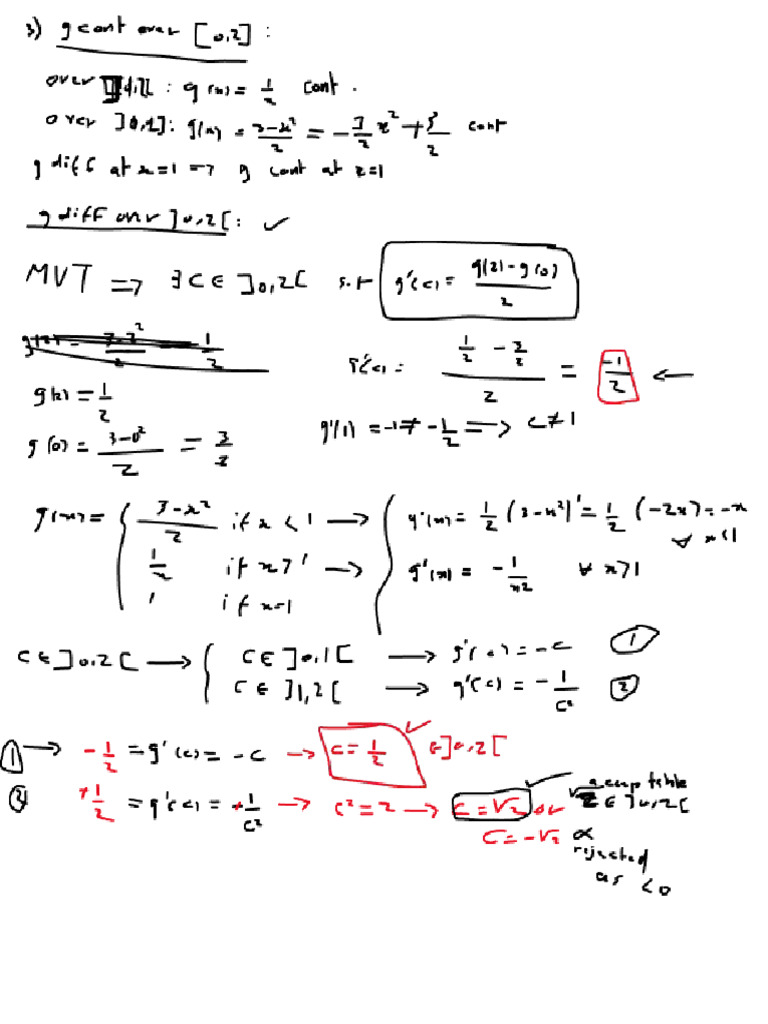 3) g cont over [0,2] :
over : g(x) = 1/x cont .
over ]0,1]: g(x) = 3-x²/2 = -1/2 x² + 3/2 cont
g diff at x=1 => g cont at x=1
g diff over ]0,2[ : ✓
MVT => ∃ C ∈ ]0,2[ s.t g'(c) = g(2) - g(0) / 2
g'(c) = 1/2 - 3/2 / 2 = -1/2 ←
g(2) = 1/2
g(0) = 3-0²/2 = 3/2
g'(1) = -1 ≠ -1/2 => c ≠ 1
g(x) = { 3-x²/2 if x < 1 → { g'(x) = 1/2 (3-x²)' = 1/2 (-2x) = -x ∀ x<1
1/x if x > 1 → g'(x) = -1/x² ∀ x>1
1 if x=1
C ∈ ]0,2[ → { C ∈ ]0,1[ → g'(c) = -c ①
C ∈ ]1,2[ → g'(c) = -1/c² ②
① → -1/2 = g'(c) = -c → c = 1/2 ∈ ]0,2[
② +1/2 = g'(c) = +1/c² → c² = 2 → C = √2 or
acceptable
√2 ∈ ]0,2[
C = -√2
rejected
as < 0